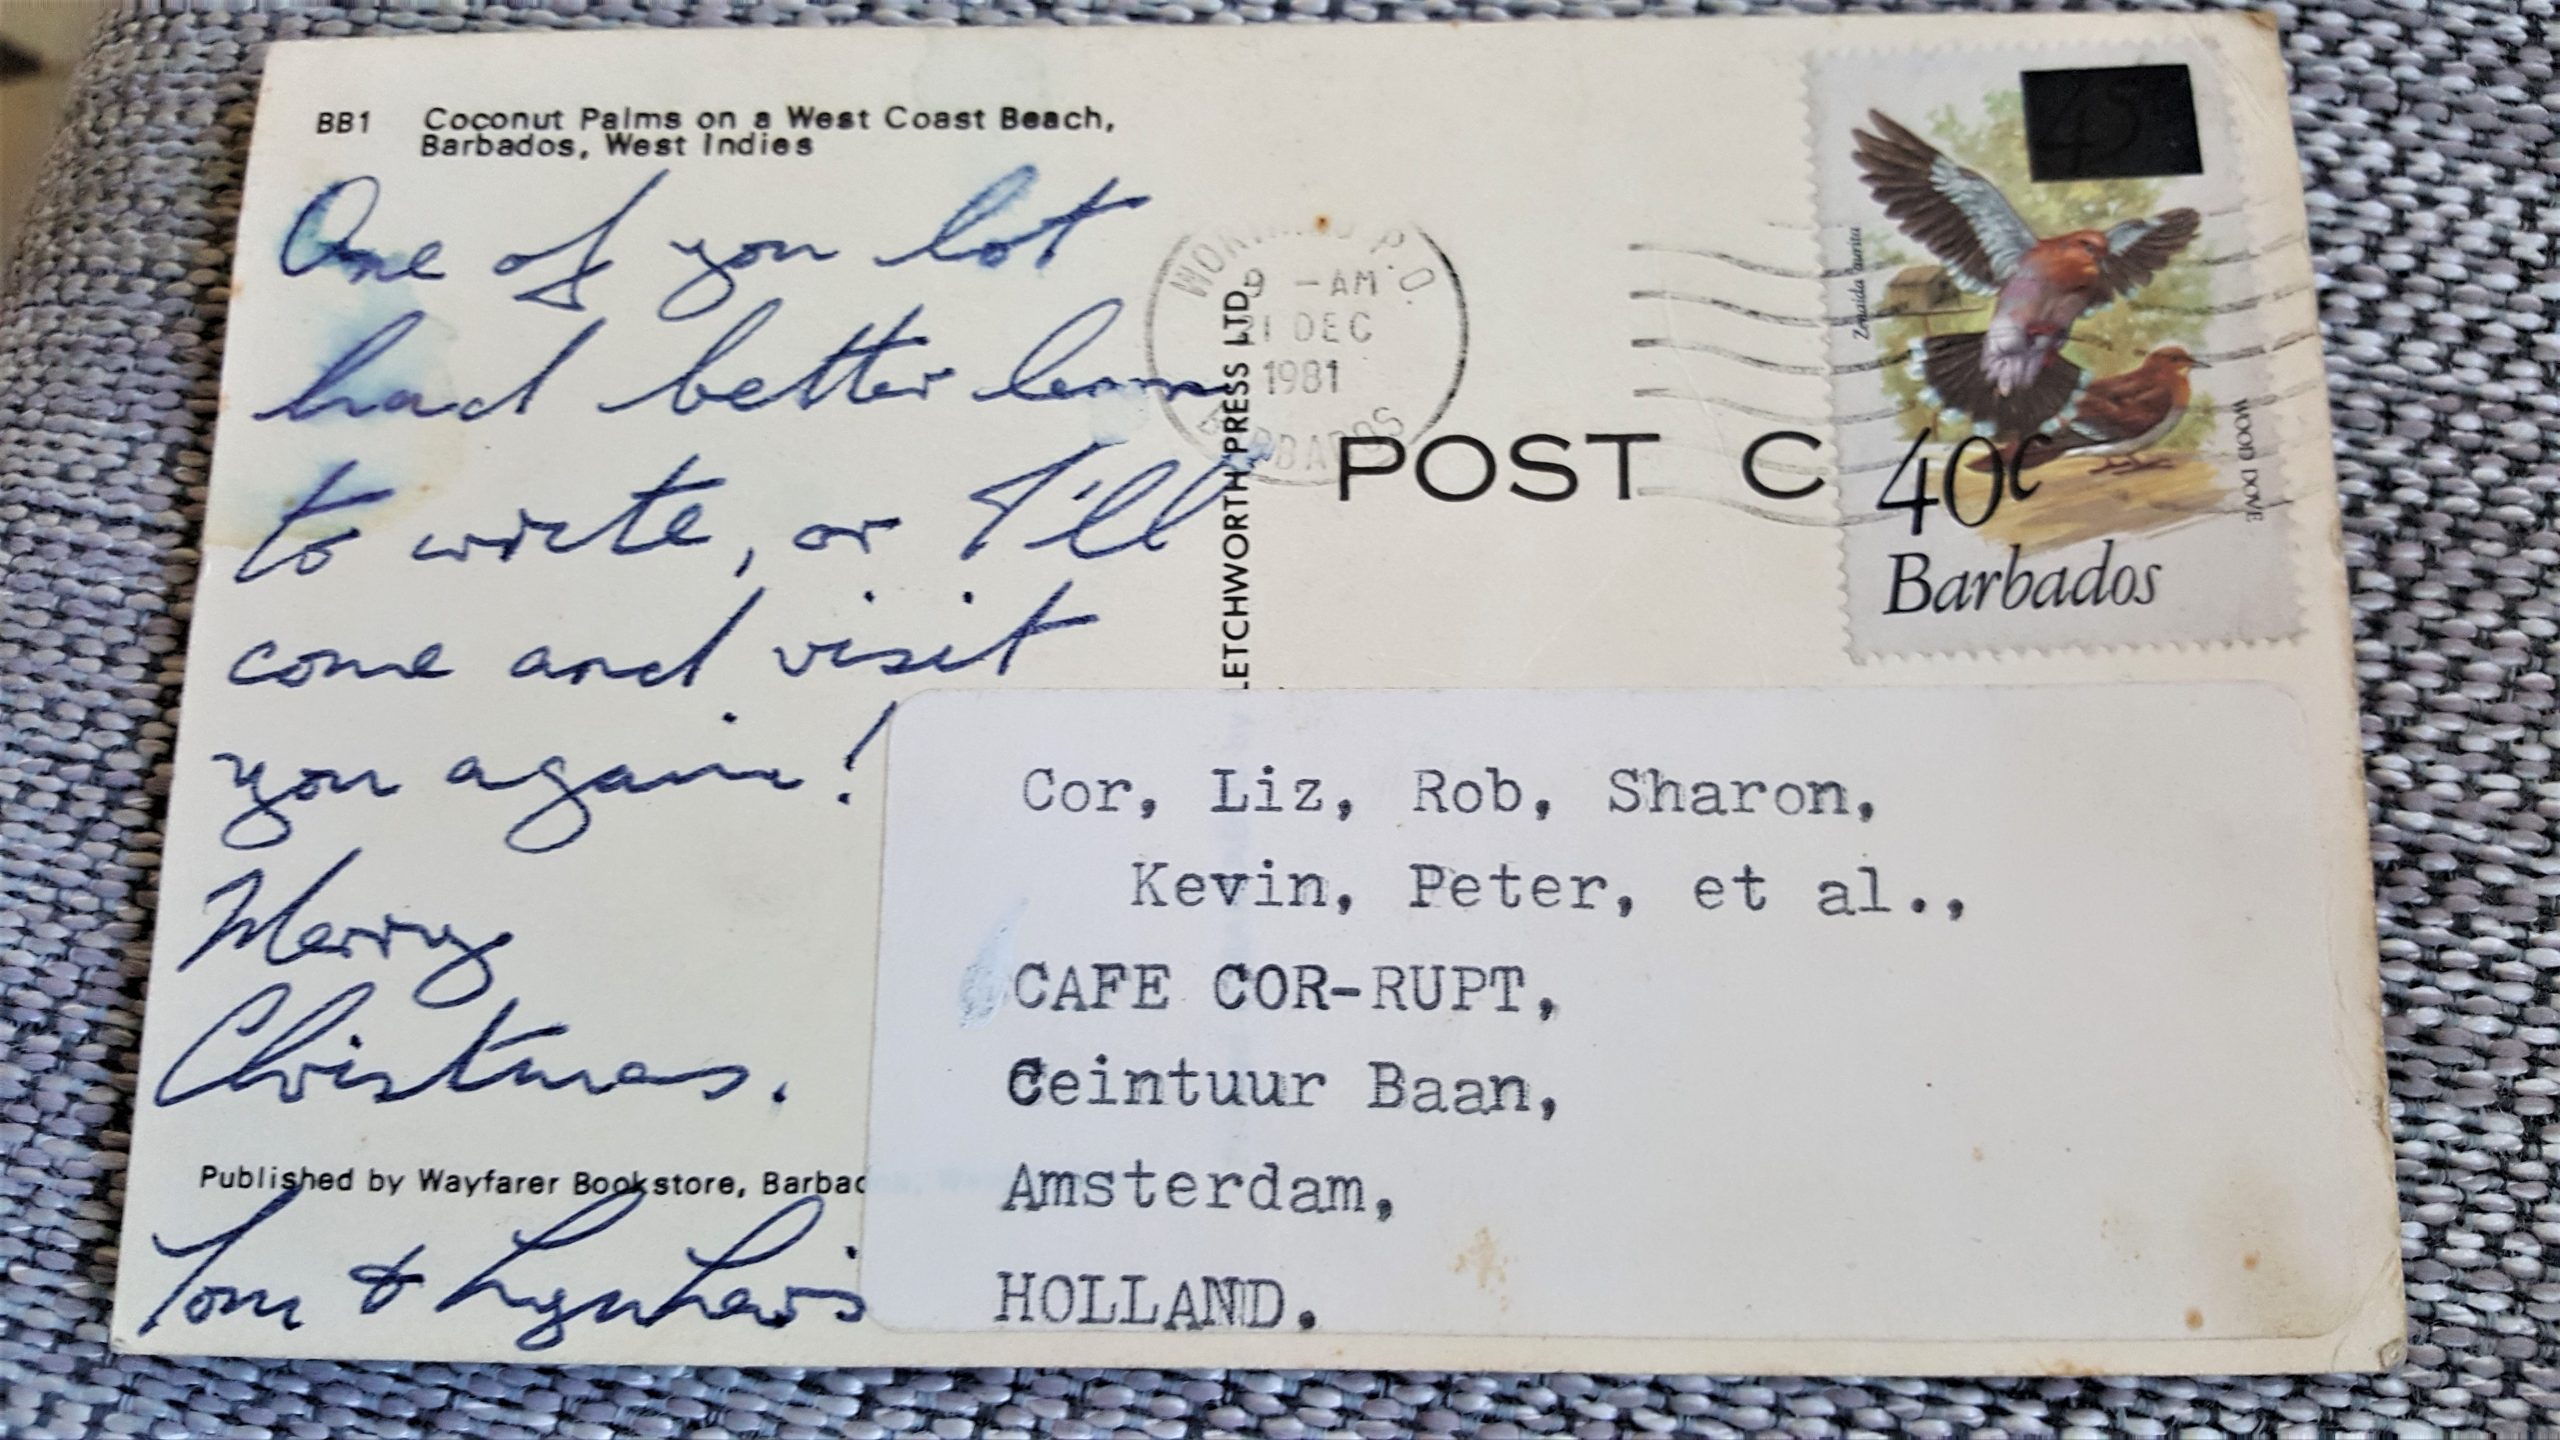 BB1 Coconut Palms on a West Coast Beach,
Barbados, West Indies
One of you lot
had better learn
to write, or I'll
come and visit
you again!
Merry
Christmas.
Published by Wayfarer Bookstore, Barbad
Tom & Lyn Lewis
LETCHWORTH PRESS LTD.
WORTHING P.O.
9 -AM
21 DEC
1981
BARBADOS
POST C
45
Zenaida aurita
WOOD DOVE
40c
Barbados
Cor, Liz, Rob, Sharon,
Kevin, Peter, et al.,
CAFE COR-RUPT,
Ceintuur Baan,
Amsterdam,
HOLLAND.